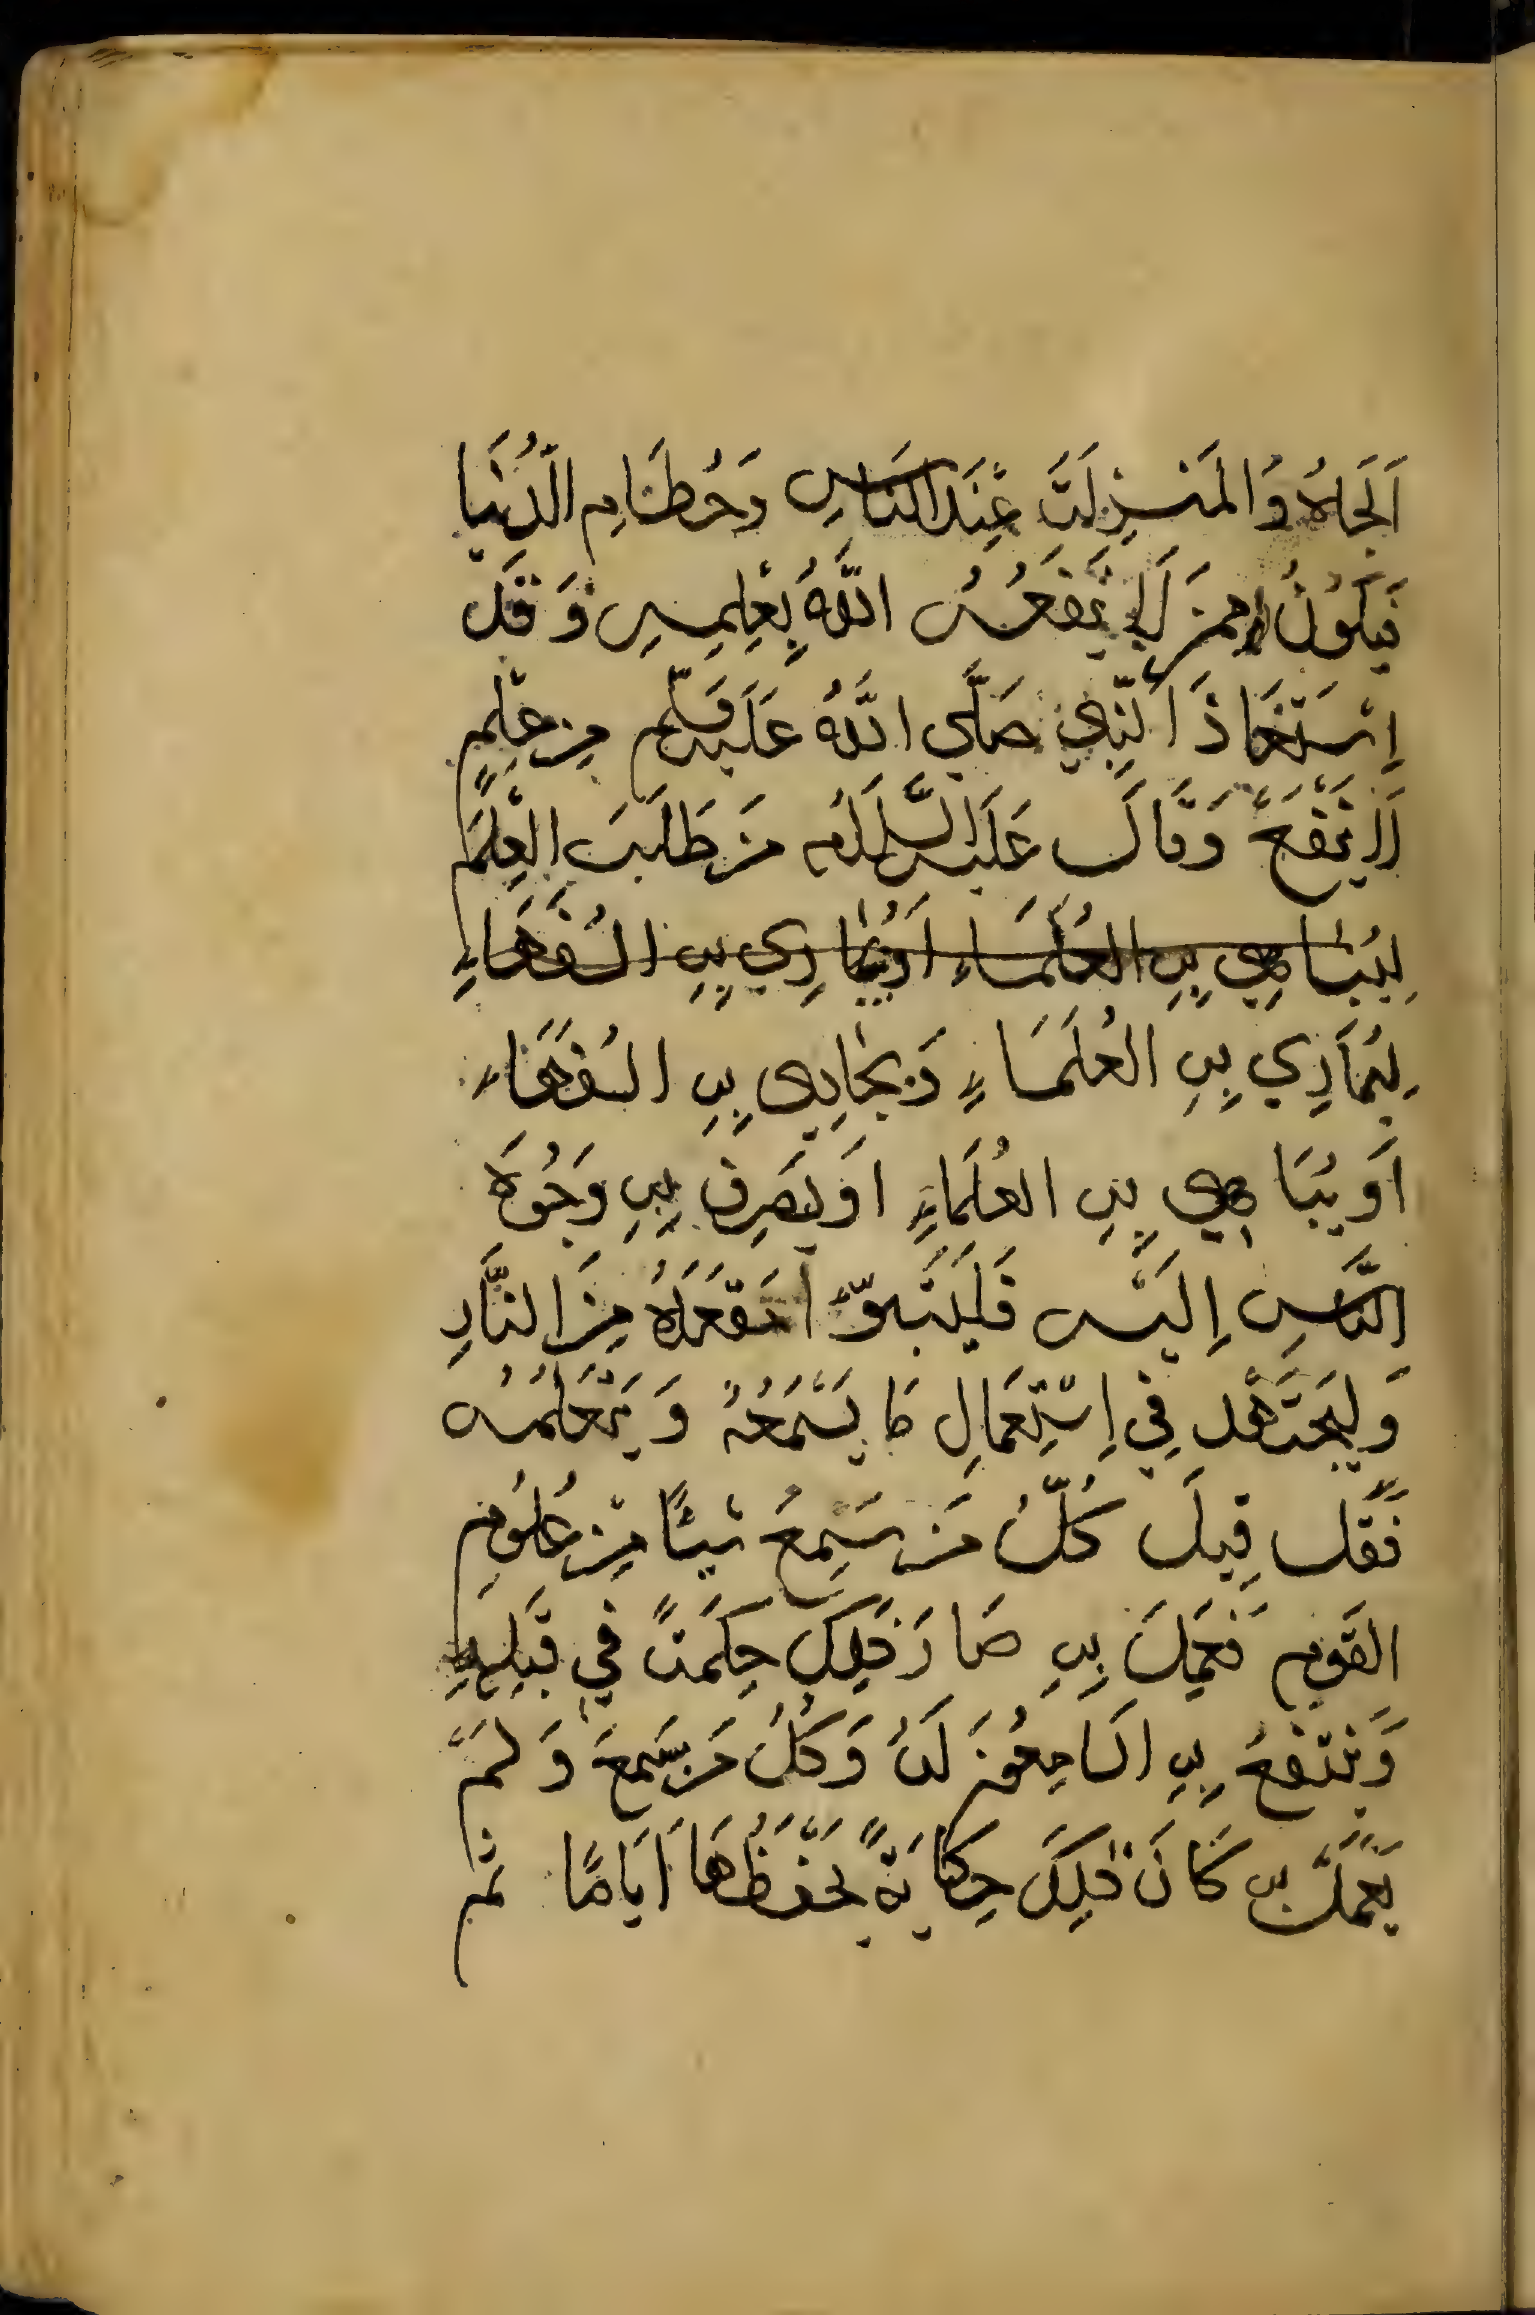 اَلجَاهُ وَالمَنزِلَتَ عِندَ النَاسِ وَحُطَامِ الدُنيَا
فَيَكُونُ مِمَن لَا يَنفَعُهُ اللّٰهُ بِعِلمِهِ وَقَد
اِستَعَاذَ النَّبِي صَلَّى اللّٰهُ عَلَيهِ وَسَلَّم مِن عِلمٍ
لَا يَنفَعُ وَقَالَ عَلَيهِ السَّلَامُ مَن طَلَبَ العِلمَ
لِيُبَاهِي بِهِ العُلَمَاءِ اَو يُمَارِي بِهِ السُفَهَاءِ
لِيُمَارِي بِهِ العُلَمَاءِ وَيُجَارِي بِهِ السُفَهَاءِ
اَو يُبَاهِي بِهِ العُلَمَاءِ اَو يَصرِفَ بِهِ وَجُوهَ
النَّاسِ اِلَيهِ فَليَتَبَوَّءَ مَقعَدَهُ مِنَ النَّارِ
وَليَجتَهِد فِي اِستِعمَالِ مَا يَسمَعُهُ وَيَتَعَلَمُهُ
فَقَد قِيلَ كُلُّ مَن سَمِعَ شَيئًا مِن عُلُومِ
القَومِ فَعَمِلَ بِهِ صَارَ ذَلِكَ حِكمَتً فِي قَلبِهِ
وَيَنتَفِعُ بِهِ السَامِعُونَ لَهُ وَكُلُ مَن سَمِعَ وَلَم
يَعمَل بِهِ كَانَ ذٰلِكَ حِكَايَةً يَحفَظُهَا اَيَامًا ثُم